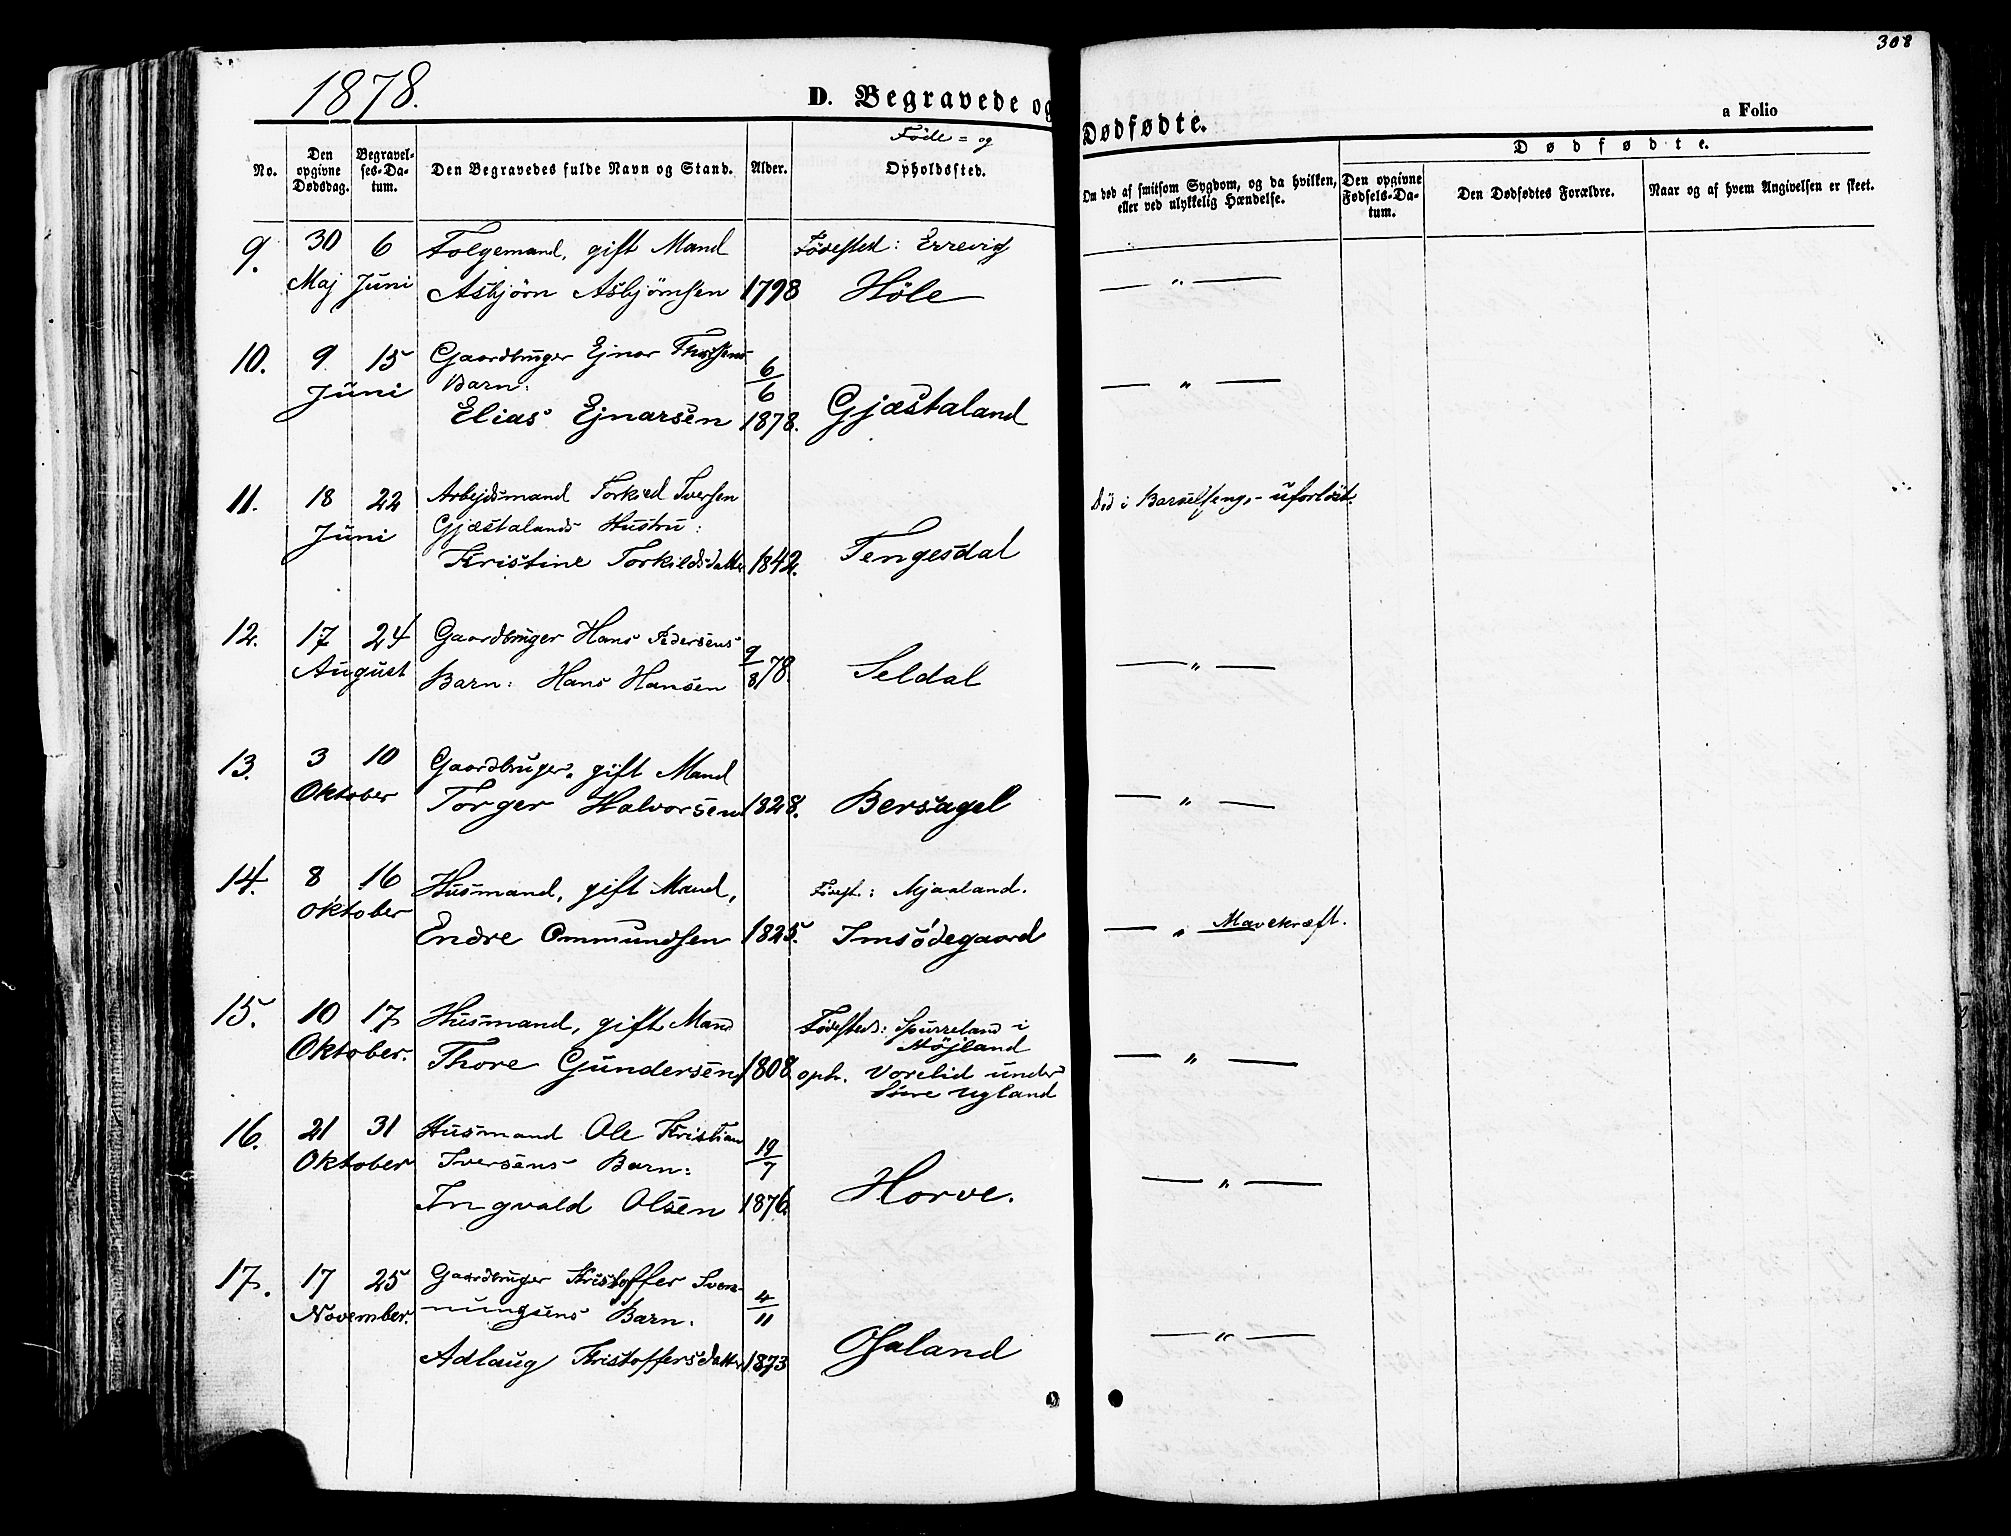 308
1878.
D. Begravede og
Dødfødte.
a Folio
No.
Den opgivne Dødsdag.
Begravelses-Datum.
Den Begravedes fulde Navn og Stand.
Alder.
Føde= og
Opholdssted.
Om død af smitsom Sygdom, og da hvilken, eller ved ulykkelig Hændelse.
Dødfødte.
Den opgivne Fødsels-Datum.
Den Dødfødtes Forældre.
Naar og af hvem Angivelsen er skeet.
9. 30 6 Folgemand, gift Mand Fødested: Errevig
Maj Juni Asbjørn Asbjørnsen 1798 Høle — " —
10. 9 15 Gaardbruger Ejnar 6/6
Juni Barn: — " —
Elias Ejnarsen 1878. Gjæstaland
11. 18 22 Arbejdsmand Torkild Iversen Død i Barselseng, - uforløst.
Juni Gjæstalands Hustru:
Kristine Torkildsdatter 1842. Tengesdal
12. 17 24 Gaardbruger Hans Pedersens 9/8 78.
August Barn: Hans Hansen Seldal — " —
13. 3 10 Gaardbruger, gift Mand
Oktober Torger Halvorsen 1828. Bersagel — " —
14. 8 16 Husmand, gift Mand, Fødest.: Mjaaland.
Oktober Endre Ommundsen 1825. Imsødegaard — " Mavekræft.
15. 10 17 Husmand, gift Mand Fødested: Spurreland i
Højland
Oktober. Thore Gundersen 1808. oph. Vorelid under — " —
Søre Ugland
16. 21 31 Husmand Ole Kristian 19/7
Oktober Iversens Barn:
Ingvald Olsen 1876. Horve. — " —
17. 17 25 Gaardbruger Kristoffer Svem-
November. mungsens Barn: 4/11
Adlaug Kristoffersdatter 1873 Osaland — " —